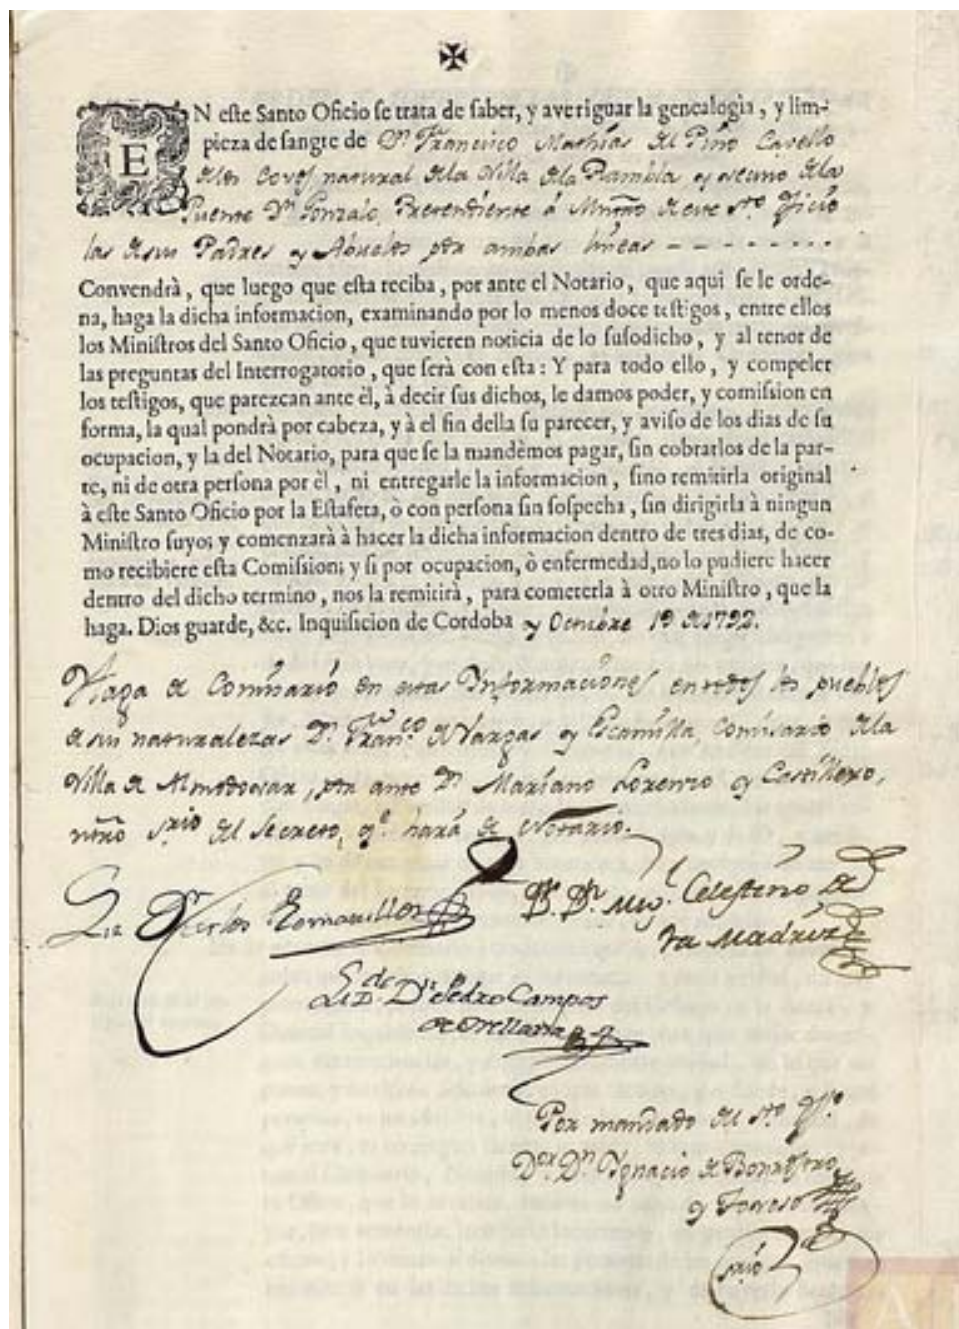 EN este Santo Oficio se trata de saber, y averiguar la genealogia, y lim-
pieza de sangre de Dn. Francisco Mathias del Pino Cavello
delos Coves natural dela Villa dela Rambla y vecino dela
Puente Dn. Gonzalo, Pretendiente á Mntro. de este Sto. Oficio
las de sus Padres y Abuelos por ambas lineas - - - - - - - - -
Convendrà, que luego que esta reciba, por ante el Notario, que aqui se le orde-
na, haga la dicha informacion, examinando por lo menos doce testigos, entre ellos
los Ministros del Santo Oficio, que tuvieren noticia de lo susodicho, y al tenor de
las preguntas del Interrogatorio, que serà con esta: Y para todo ello, y compeler
los testigos, que parezcan ante èl, à decir sus dichos, le damos poder, y comission en
forma, la qual pondrà por cabeza, y à el fin della su parecer, y aviso de los dias de su
ocupacion, y la del Notario, para que se la mandèmos pagar, sin cobrarlos de la par-
te, ni de otra persona por èl, ni entregarle la informacion, sino remitirla original
à este Santo Oficio por la Estafeta, ò con persona sin sospecha, sin dirigirla à ningun
Ministro suyo; y comenzarà à hacer la dicha informacion dentro de tres dias, de co-
mo recibiere esta Comission; y si por ocupacion, ò enfermedad, no lo pudiere hacer
dentro del dicho termino, nos la remitirà, para cometerla à otro Ministro, que la
haga. Dios guarde, &c. Inquisicion de Cordoba y Octubre 19 de 1792.
Haga de Comisario en estas Informaciones en todos los pueblos
de sus naturalezas Dn. Franco. de Vargas y Escamilla, Comisario dela
Villa de Almodovar, por ante Dn. Mariano Lorenzo y Castillero,
ntro Srio del Secreto, qe. hará de Notario.
Liz Dn Carlos
Dr. Dn. Migl. Celestino de
la Madriz
Lizdo. Dn Pedro Campos
de Orellana
Por mandado del Sto. Ofo.
Dor. Dn Ignacio de
y
Srio